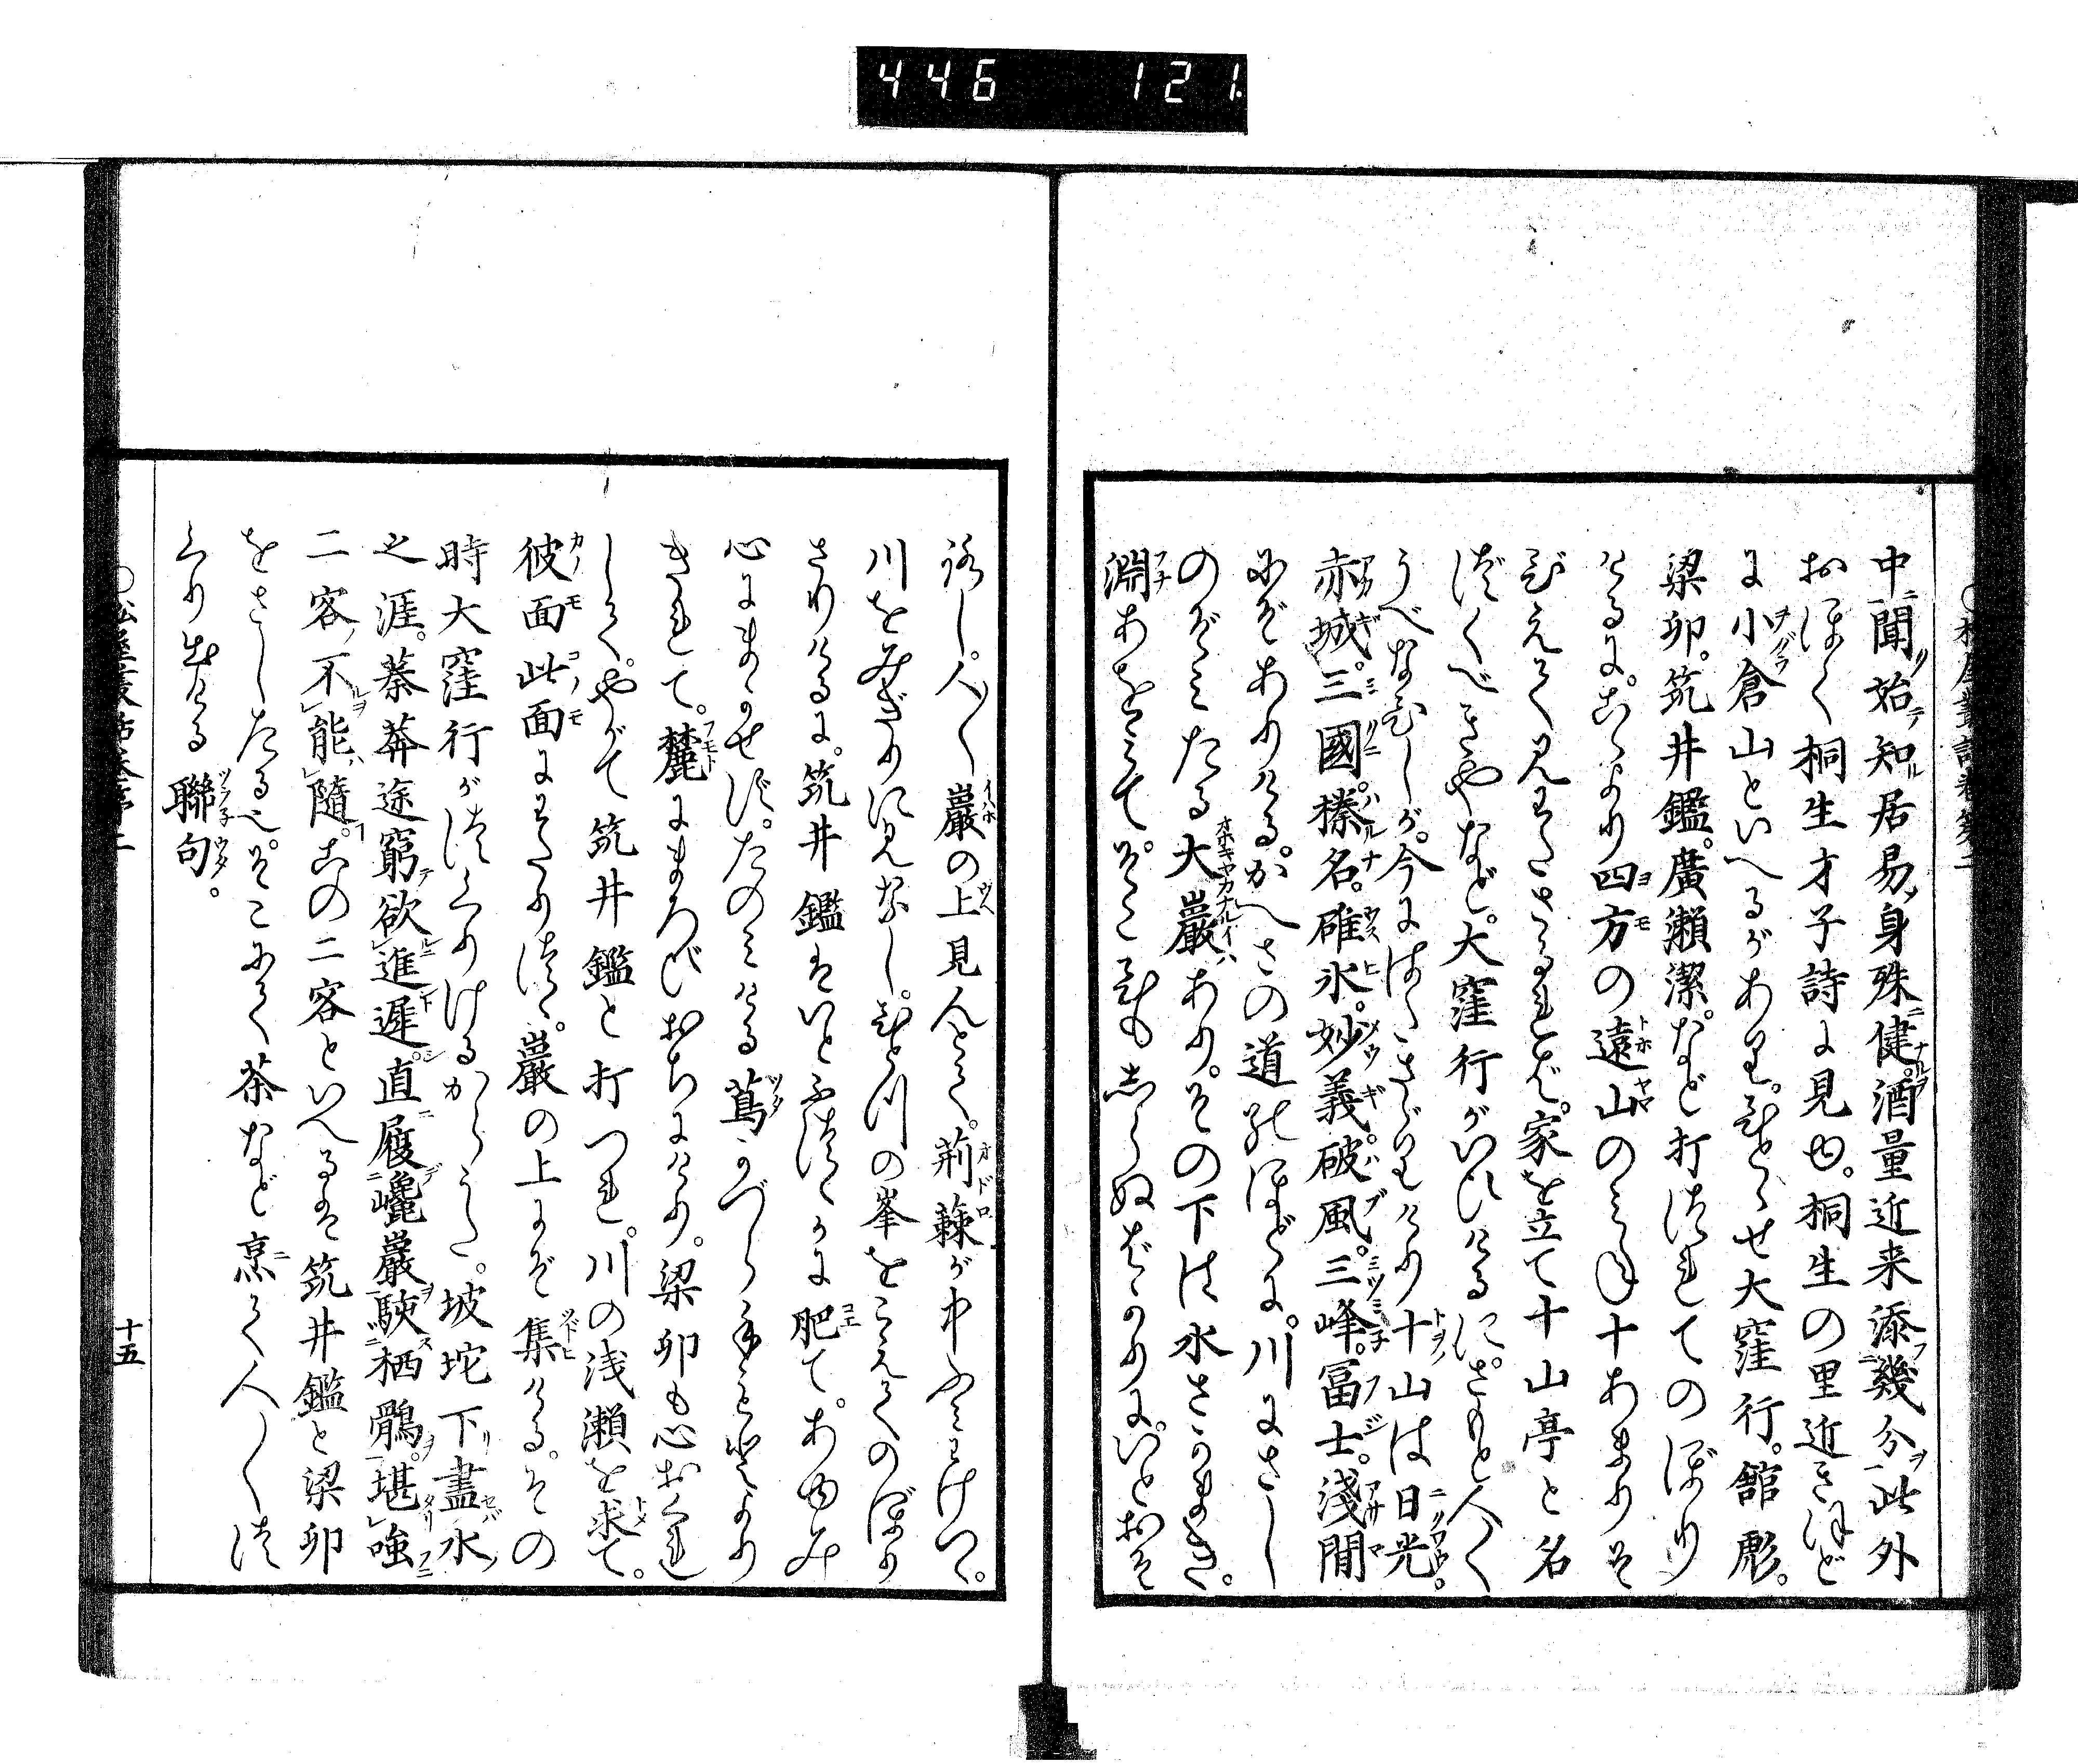 446 121
中聞始知居易身殊健酒量近来添幾分此外
おほく桐生才子詩に見ゆ。桐生の里近きほど
に小倉山といへるがあり。ひとゝせ大窪行。舘彫。
梁卯。筑井鑑。廣瀬潔。など打つれてのぼり
けるに。こゝより四方の遠山のみね十あまりそ
びえて見わたさるれば。家を立て十山亭と名
づくべきやなど。大窪行がいひけるに。さもと人〱
うべなひしが。今にはたさゞりけり十山は日光。
赤城。三國。榛名。碓氷。妙義。破風。三峰。冨士。淺間
にぞありける。かへさの道のほどに。川にさし
のぞみたる大巖あり。その下は水さかまき。
淵あをみて。そこひもしらぬばかりに。いとおそ
ろし。人〱巖の上見んとて。荊蕀が中ふみわけつゝ。
川をみぎりに見なし。ひとつの峯をこえてのぼり
さりけるに。筑井鑑はいとふつゝかに肥て。あゆみ
心にまかせず。たのみける蔦かづら手もとより
きれて。麓にまろびおちにけり。梁卯も心おくれ
して。やがて筑井鑑と打つれ。川の浅瀬を求て。
彼面此面にわたりつゝ。巖の上にぞ集ける。その
時大窪行がつくりけるからうた。坡坨下盡水
之涯。蓁莽途窮欲進遲。直履巉巖駛栖鶻。堪嗤
二客不能隨。この二客といへるは筑井鑑と梁卯
をさしたる也。そこにて茶など烹て人〱つ
くり出たる聯句。
十五